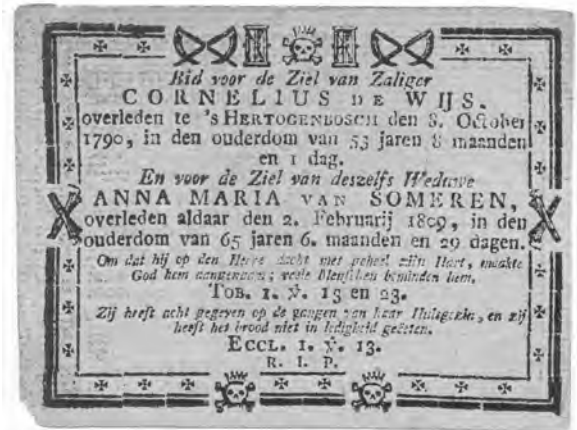 Bid voor de Ziel van Zaliger
CORNELIUS DE WIJS.
overleden te 's HERTOGENBOSCH den 8. October
1790, in den ouderdom van 53 jaren 8 maanden
en 1 dag.
En voor de Ziel van deszelfs Weduwe
ANNA MARIA VAN SOMEREN,
overleden aldaar den 2. Februarij 1809, in den
ouderdom van 65 jaren 6. maanden en 29 dagen.
Om dat hij op den Heere dacht met geheel zijn Hart, maakte
God hem aangenaam; veele Menschen beminden hem.
TOB. 1. ℣. 13 en 23.
Zij heeft acht gegeven op de gangen van haar Huisgezin, en zij
heeft het brood niet in ledigheid geëeten.
ECCL. 1. ℣. 13.
R. I. P.